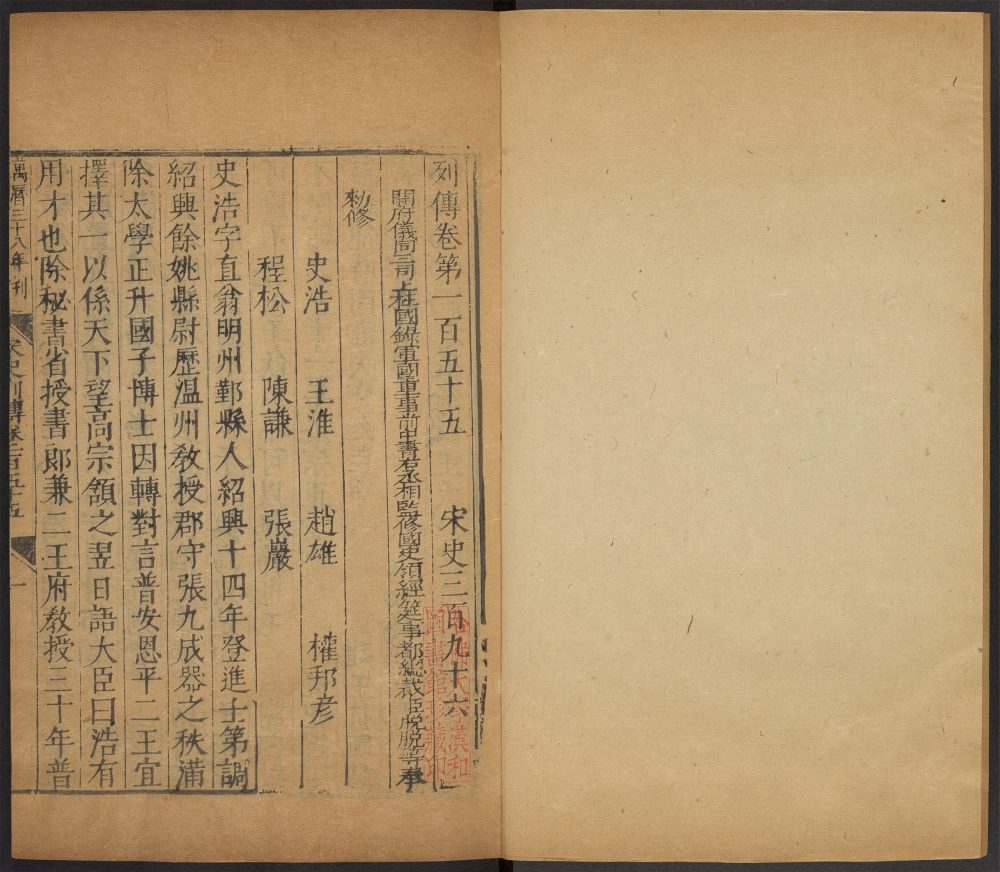 列傳卷第一百五十五　宋史三百九十六
開府儀同三司上柱國錄軍國重事前中書右丞相監修國史領經筵事都總裁臣脫脫等奉
勑修
史浩　王淮　趙雄　權邦彥
程松　陳謙　張巖
史浩字直翁明州鄞縣人紹興十四年登進士第調
紹興餘姚縣尉歷温州教授郡守張九成器之秩滿
除太學正升國子博士因轉對言普安恩平二王宜
擇其一以係天下望高宗頷之翌日語大臣曰浩有
用才也除秘書省授書郎兼二王府教授三十年普
萬曆三十八年刊
宋史列傳卷一百五十五
一
圖書館珍藏印
漢和